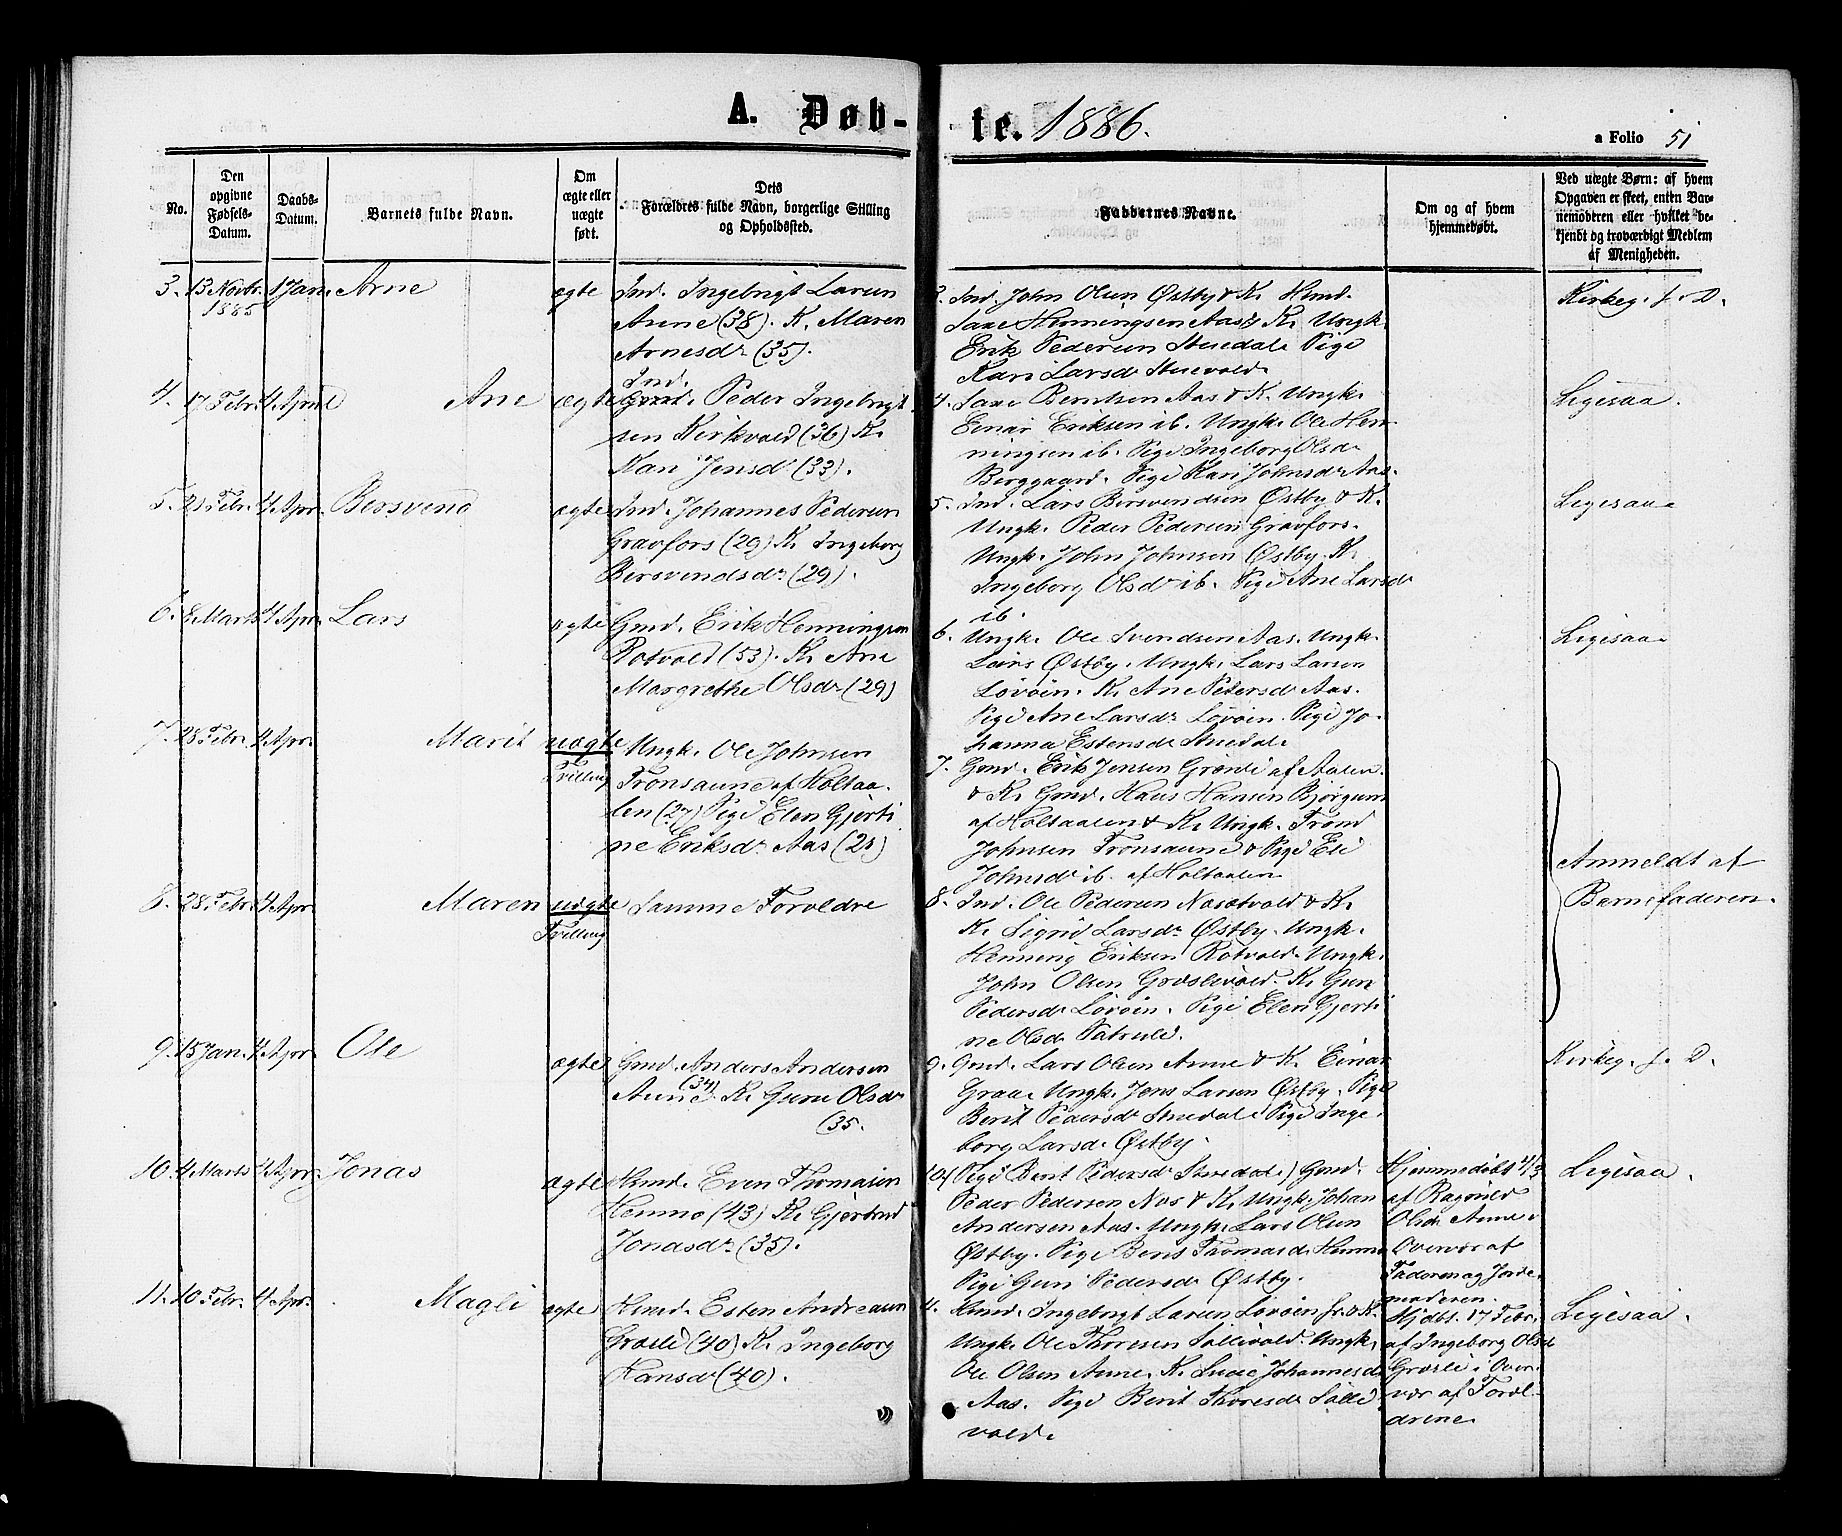 A. Døb-
te. 1886.
a Folio 51
No.
Den
opgivne
Fødsels-
Datum.
Daabs-
Datum.
Barnets fulde Navn.
Om
ægte eller
uægte
født.
Dets
Forældres fulde Navn, borgerlige Stilling
og Opholdssted.
Faddernes Navne.
Om og af hvem
hjemmedøbt.
Ved uægte Børn: af hvem
Opgaven er skeet, enten Bar-
nemoderen eller hvilket be-
kjendt og troværdigt Medlem
af Menigheden.
3. 13 Novbr. 1885 1 Jan. Arne ægte
Ind. Ingebrigt Larsen
Aune (38). K. Maren
Arnesdr (35).
3. Ind. John Olsen Østby & K. Hmd.
Saxe Henningsen Aas & K. Ungk.
Erik Pedersen Stuedal. Pige
Kari Larsdr Stuevold.
Kirkeg. f. D.
4. 17 Febr. 4 April Ane ægte
Ind.
Peder Ingebrigt-
sen Kirkvold (36) K.
Kari Jensdr (33).
4. Saxe Berntsen Aas & K. Ungk.
Einar Eriksen ib. Ungk. Ole Hen-
ningsen ib. Pige Ingeborg Olsdr
Berggaard. Pige Kari Johnsdr Aas.
Ligesaa.
5. 21 Febr. 4 Apr. Bersvend ægte
Ind. Johannes Pedersen
Gravfors (29) K. Ingeborg
Bersvendsdr (29).
5. Ind. Lars Bersvendsen Østby & K.
Ungk. Peder Pedersen Gravfors.
Ungk. John Johnsen Østby. K.
Ingeborg Olsdr ib. Pige Ane Larsdr
ib.
Ligesaa.
6. 8 Marts 4 Apr. Lars ægte
Gmd. Erik Henningsen
Rotvold (53). K. Ane
Margrethe Olsdr (29)
6. Ungk. Ole Svendsen Aas. Ungk.
Lars Østby. Ungk. Lars Larsen
Løvøien. K. Ane Pedersdr Aas.
Pige Ane Larsdr Løvøien. Pige Jo-
hanna Estensdr Stuedal.
Ligesaa.
7. 28 Febr. 4 Apr. Marit uægte
Tvilling
Ungk. Ole Johnsen
Tronsaune af Holtaa-
len (27) Pige Elen Gjerti
ne Eriksdr Aas (21)
7. Gmd. Erik Jensen af Aalen
& K. Gmd. Hans Hansen Bjørgum
af Holtaalen & K. Ungk. Trond
Johnsen Tronsaune & Pige Eli
Johnsdr ib. af Holtaalen
8. 28 Febr. 4 Apr. Maren uægte
Tvilling
Samme Forældre
8. Ind. Ole Pedersen & K.
K. Sigrid Larsdr Østby. Ungk.
Henning Eriksen Rotvold. Ungk.
John Olsen Græslivold. K. Guri
Pedersdr Løvøien. Pige Elen Gjerti
ne Olsdr
Anmeldt af
Barnefaderen.
9. 15 Jan. 4 Apr. Ole ægte
Gmd. Anders Andersen
(34)
Aune K. Guru Olsdr
(35.
9. Gmd. Lars Olsen Aune & K. Einar
Graa. Ungk. Jens Larsen Østby. Pige
Berit Pedersdr Stuedal. Pige Inge
borg Larsd. Østby.
Kirkeg. f. D.
10. 4 Marts 4 Apr. Jonas ægte
Hsmd. Even Thomasen
Hemmo (43) K. Gjertrud
Jonasdr (35).
10. Pige Berit Pedersdr Stuedal) Gmd.
Peder Pedersen Nos & K. Ungk. Johan
Andersen Aas. Ungk. Lars Olsen
Østby. Pige Beris Thomasd. Hemmo
Pige Guri Pedersdr Østby.
Hjemmedøbt 4/3
af Ragnild
Olsdr Aune i
Overvær af
Faderen og Jorde
moderen.
Ligesaa.
11. 10 Febr. 4 Apr. Magli ægte
Hsmd. Esten Andreasen
Græsli (40) K. Ingeborg
Hansdr (40).
Hsmd. Ingebrigt Larsen Løvøien jr. & K.
Ungk. Ole Thoresen Sellivold. Ungk.
Ole Olsen Aune. K. Johannesdr
Aas. Pige Berit Thoresdr Selli
vold.
Hjdbt. 17 Febr.
af Ingeborg Olsdr
Græsli i Over-
vær af Foræl-
drene.
Ligesaa.